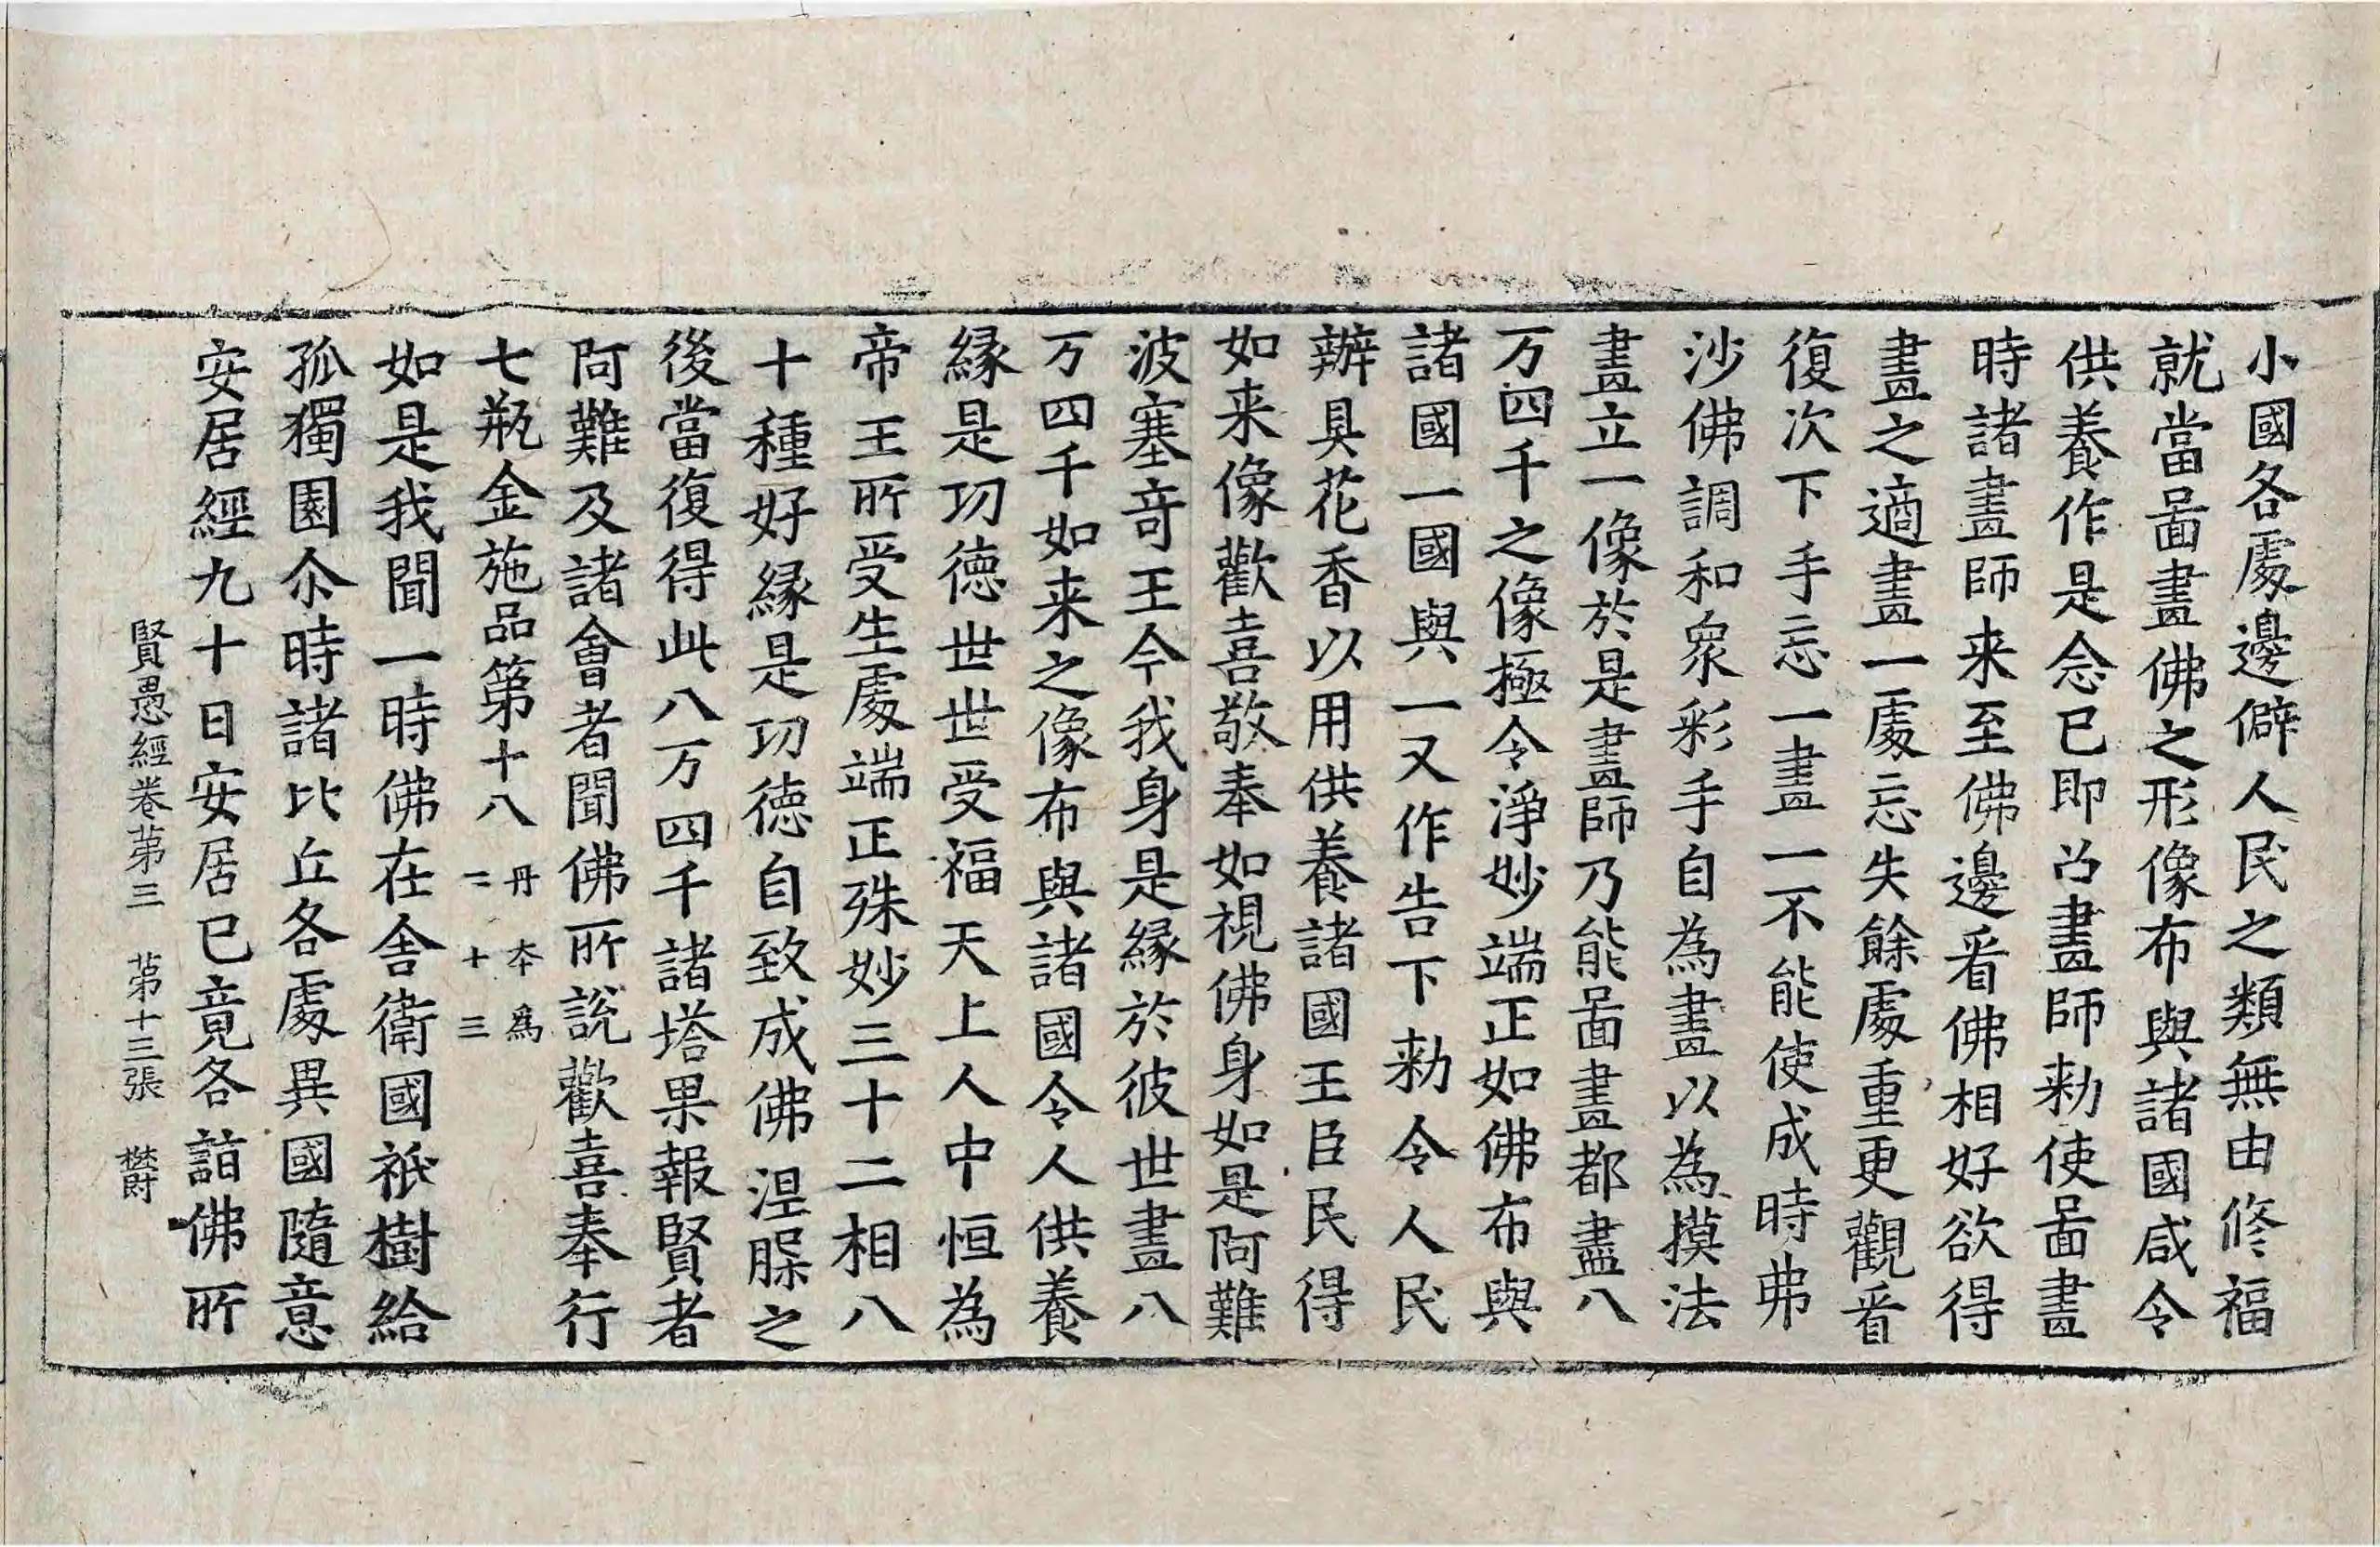 小國各處邊僻人民之類無由修福
就當啚畫佛之形像布與諸國咸令
供養作是念已即呂畫師勑使啚畫
時諸畫師来至佛邊看佛相好欲得
畫之適畫一處忘失餘處重更觀看
復次下手忘一畫一不能使成時弗
沙佛調和衆彩手自為畫以為摸法
畫立一像於是畫師乃能啚畫都盡八
万四千之像極令淨妙端正如佛布與
諸國一國與一又作告下勑令人民
辦具花香以用供養諸國王臣民得
如来像歡喜敬奉如視佛身如是阿難
波塞竒王今我身是緣於彼世畫八
万四千如来之像布與諸國令人供養
緣是功德世世受福天上人中恒為
帝王所受生處端正殊妙三十二相八
十種好緣是功德自致成佛涅槃之
後當復得此八万四千諸塔果報賢者
阿難及諸會者聞佛所說歡喜奉行
七瓶金施品第十八 丹本為二十三
如是我聞一時佛在舍衛國祇樹給
孤獨園尒時諸比丘各處異國隨意
安居經九十日安居已竟各詣佛所
賢愚經卷第三 第十三張 欎